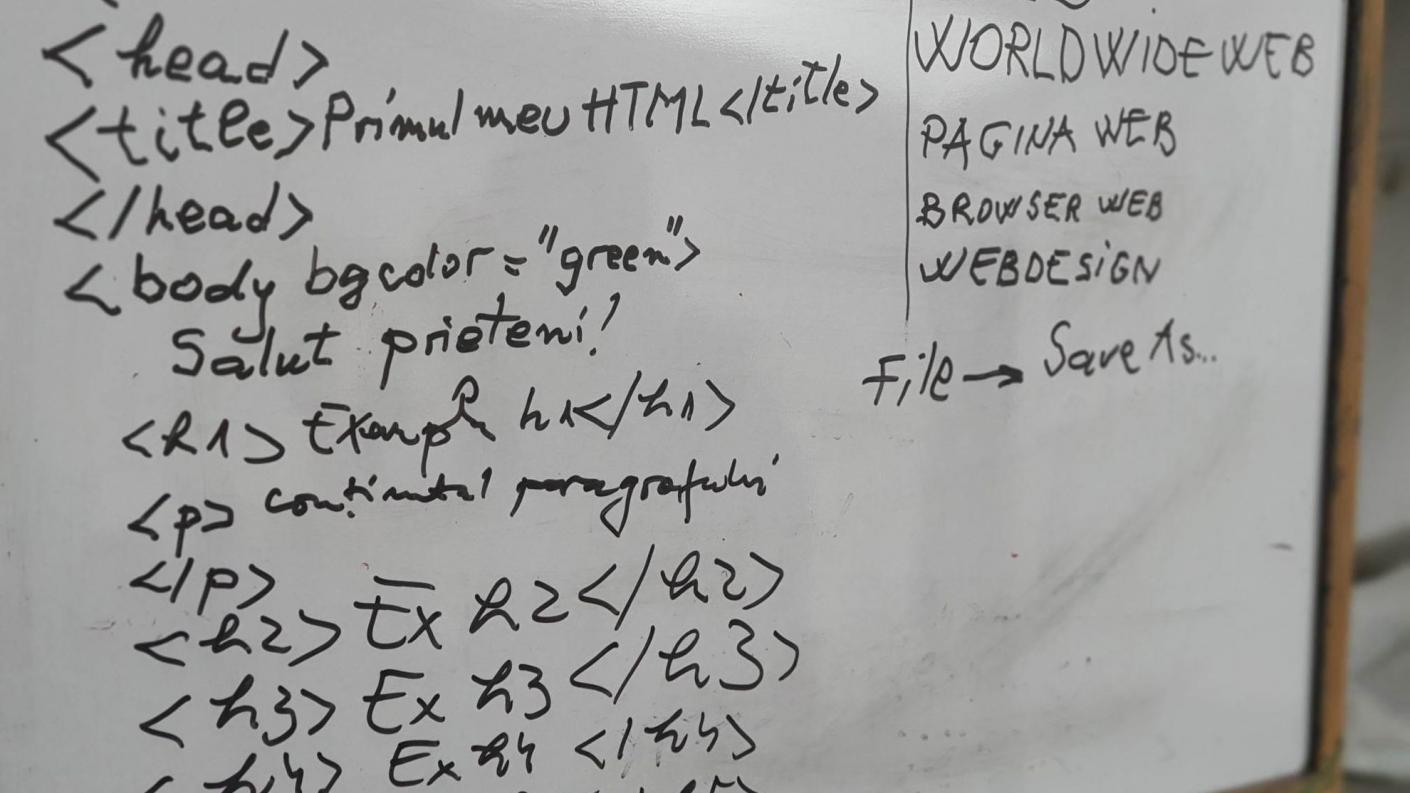 <head>
<title>Primul meu HTML</title>
</head>
<body bgcolor="green">
Salut prieteni!
<h1> Exempl h1</h1>
<p> conținutul paragrafului
</p>
<h2> Ex h2</h2>
<h3> Ex h3</h3>
<h4> Ex h4 </h4>
WORLD WIDE WEB
PAGINA WEB
BROWSER WEB
WEBDESIGN
File → Save As...